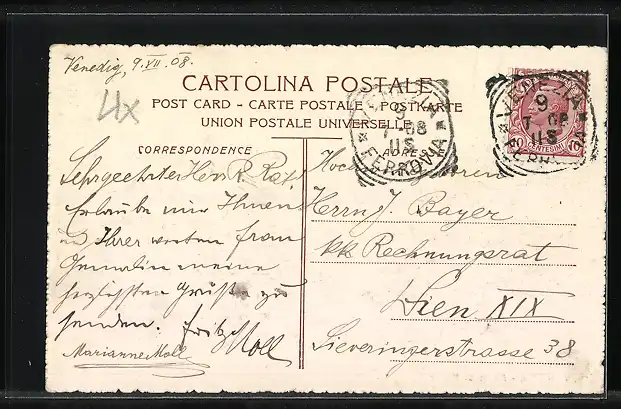 Venedig, 9.VII.08.
4x
CARTOLINA POSTALE
POST CARD - CARTE POSTALE - POSTKARTE
UNION POSTALE UNIVERSELLE
CORRESPONDENCE
Sehrgeehrter Herr R. Rat,
Erlaube mir Ihnen
und Ihrer werten Frau
Gemalin meine
herzlichsten Grüße zu
senden. Fritz Moll
Marianne Moll
VENEZIA
9
7-08
11S
FERROVIA
VENEZIA
9
7 08
11S
10 CENTESIMI 10
Herrn J. Bayer
kk Rechnungsrat
Wien XIX
Sieveringerstrasse 38